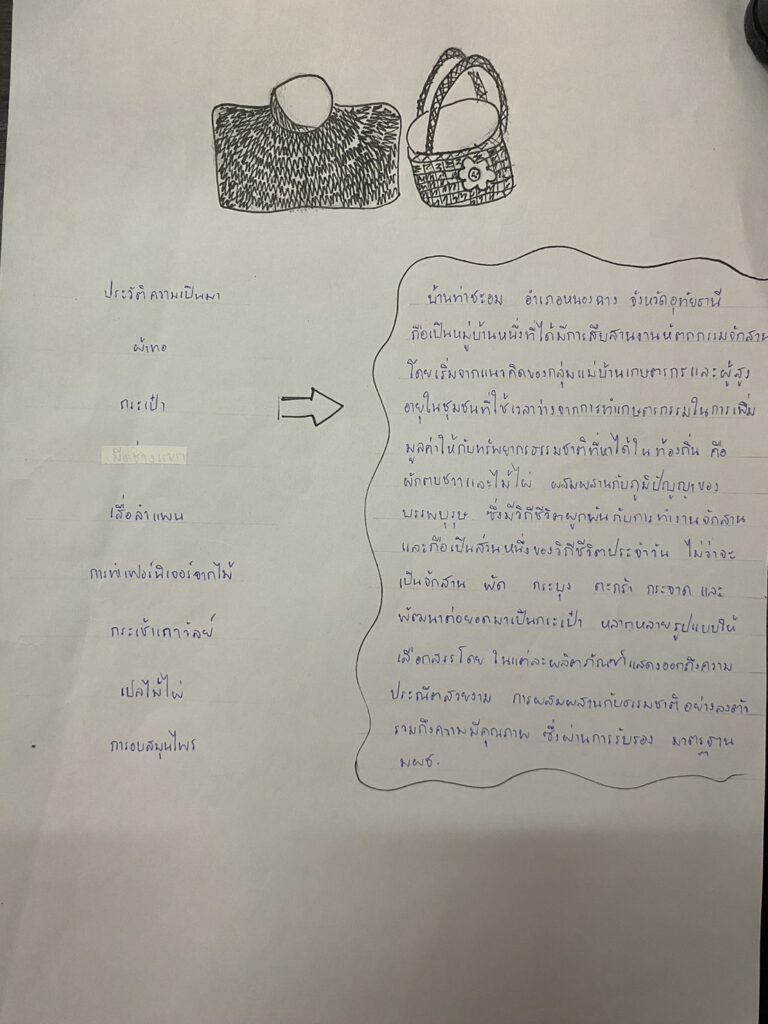 ประวัติความเป็นมา
ผ้าทอ
กระเป๋า
มีดช่างแขก
เสื่อลำแพน
การทำเฟอร์นิเจอร์จากไม้
กระเช้าเถาวัลย์
เปลไม้ไผ่
การอบสมุนไพร
บ้านท่าชะอม อำเภอหนองฉาง จังหวัดอุทัยธานี
ถือเป็นหมู่บ้านหนึ่งที่ได้มีการสืบสานงานหัตถกรรมจักสาน
โดยเริ่มจากแนวคิดของกลุ่มแม่บ้านเกษตรกรและผู้สูง
อายุในชุมชนที่ใช้เวลาว่างจากการทำเกษตรกรรมในการเพิ่ม
มูลค่าให้กับทรัพยากรธรรมชาติที่หาได้ในท้องถิ่น คือ
ผักตบชวาและไม้ไผ่ ผสมผสานกับภูมิปัญญาของ
บรรพบุรุษ ซึ่งมีวิถีชีวิตผูกพันกับการทำงานจักสาน
และถือเป็นส่วนหนึ่งของวิถีชีวิตประจำวัน ไม่ว่าจะ
เป็นจักสาน พัด กระบุง ตะกร้า กระจาด และ
พัฒนาต่อยอดมาเป็นกระเป๋า หลากหลายรูปแบบให้
เลือกสรรโดย ในแต่ละผลิตภัณฑ์แสดงออกถึงความ
ประณีตสวยงาม การผสมผสานกับธรรมชาติอย่างลงตัว
รวมถึงความมีคุณภาพ ซึ่งผ่านการรับรอง มาตรฐาน
มผช.